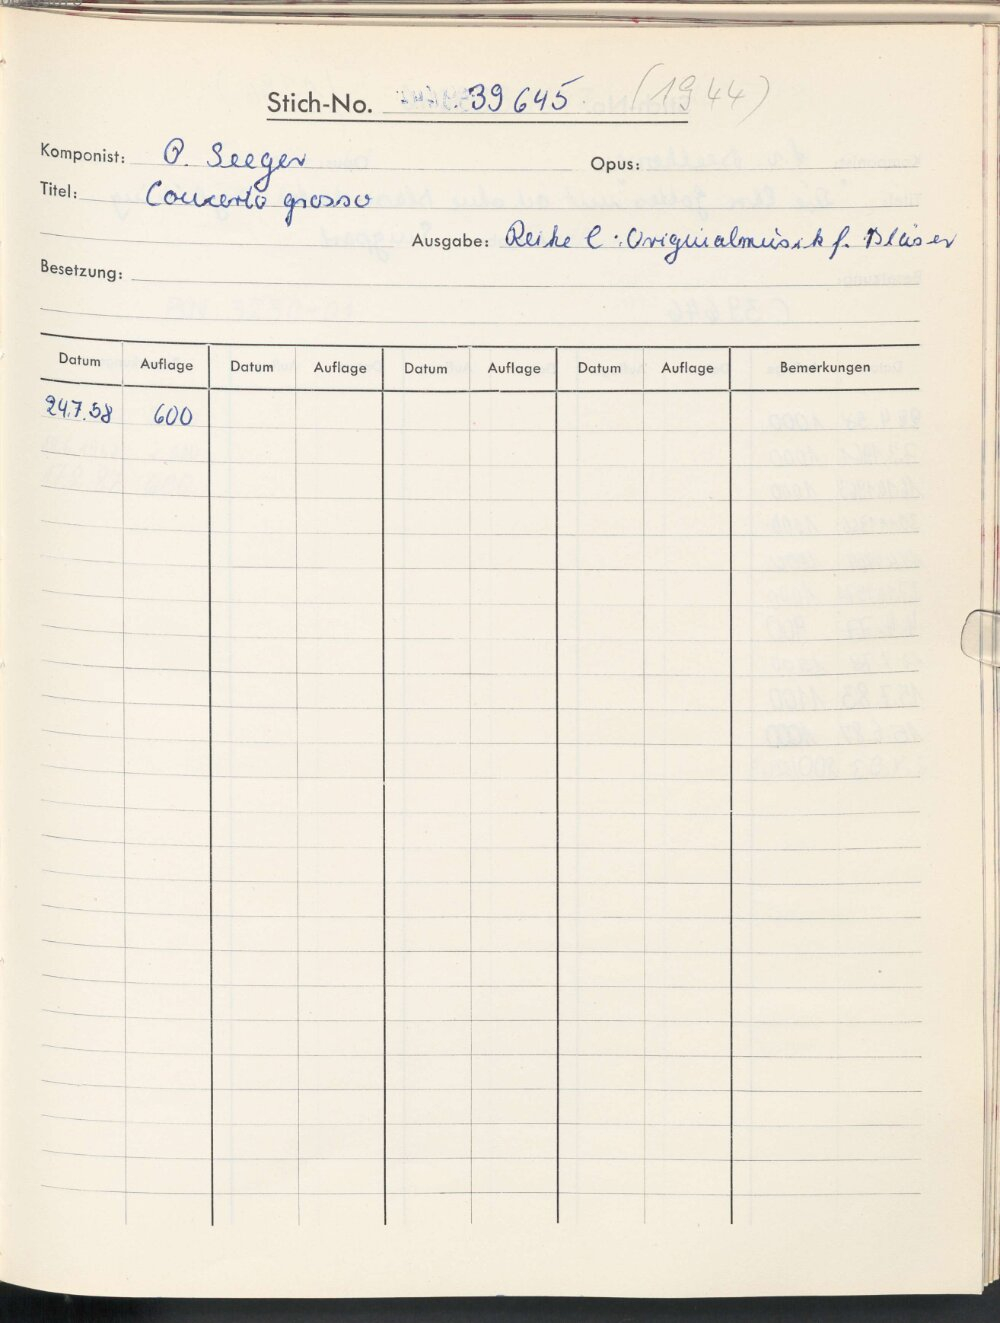 Stich-No. 39645 (1944)
Komponist: P. Seeger Opus:
Titel: Concerto grosso
Ausgabe: Reihe C: Originalmusik f. Bläser
Besetzung:
Datum Auflage Datum Auflage Datum Auflage Datum Auflage Bemerkungen
24.7.58 600